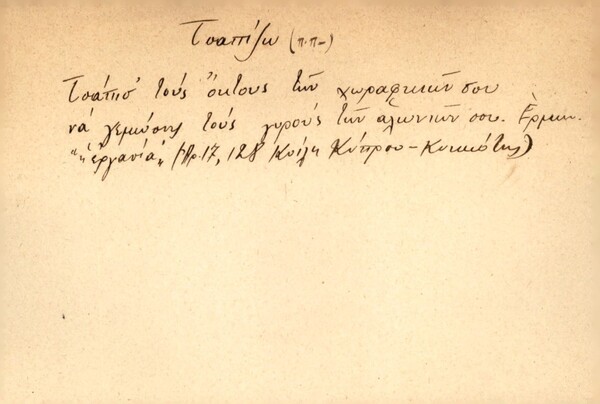 Τσαπίζω (π.π-)
Τσάπισ' τούς ὄκτους τῶν χωραφκιῶν σου
νά γεμώσῃς τούς γυρούς τῶν ἁλωνιῶν σου. Ἑρμην.
"ἡ ἐργασία" (Ἀρ. 17, 128 Κοίλη Κύπρου-Κυκκώτης)